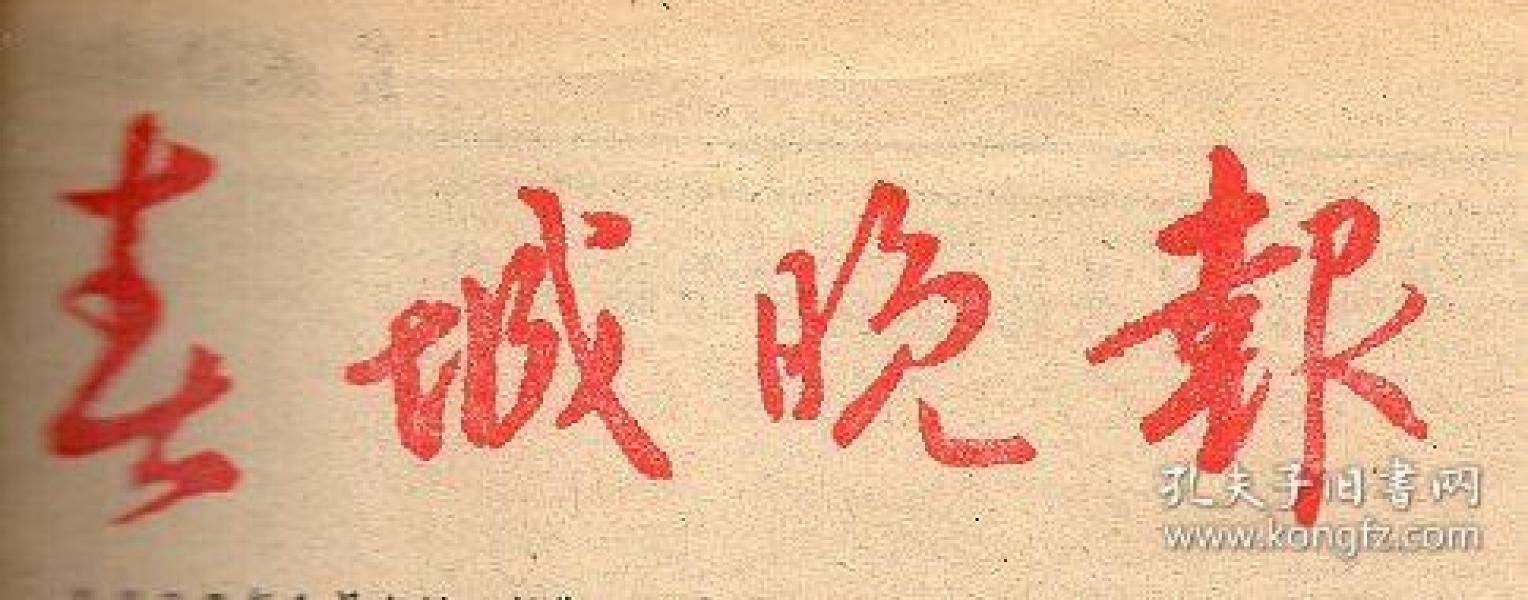 春城晚報
孔夫子旧書网
www.kongfz.com